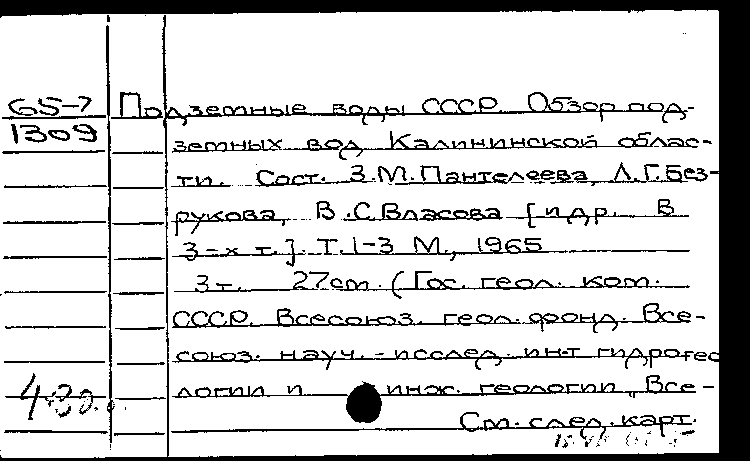 65-7 Подземные воды СССР. Обзор под-
1309 земных вод Калининской облас-
ти. Сост. З.М.Пантелеева, Л.Г.Без-
рукова, В.С.Власова [и др. В
3-х т.]. Т.1-3 М., 1965
3т. 27см. (Гос. геол. ком.
СССР. Всесоюз. геол. фонд. Все-
союз. науч.-исслед. ин-т гидрогео
логии и инж. геологии „Все-
См. след. карт.